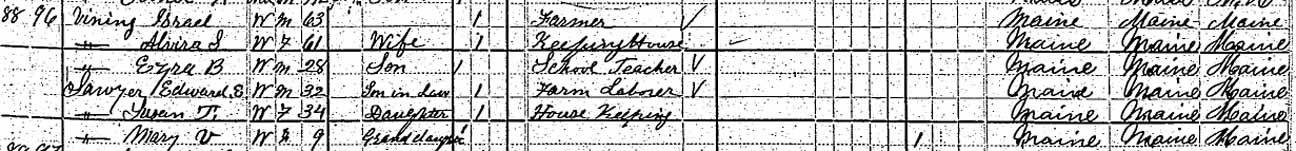 88 96 Vining Israel W M 63 1 Farmer √ Maine Maine Maine
" Alvira S W F 61 Wife 1 Keeping House Maine Maine Maine
" Ezra B W M 28 Son / School Teacher √ Maine Maine Maine
Sawyer Edward E W M 32 Son in Law 1 Farm Laborer √ Maine Maine Maine
" Susan T. W F 34 Daughter 1 House Keeping Maine Maine Maine
" Mary V W F 9 Grand daughter 1 Maine Maine Maine